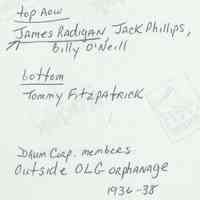 top Row
James Radigan, Jack Phillips,
Billy O'Neill
bottom
Tommy Fitzpatrick
Drum Corp. members
Outside OLG orphanage
1936-38